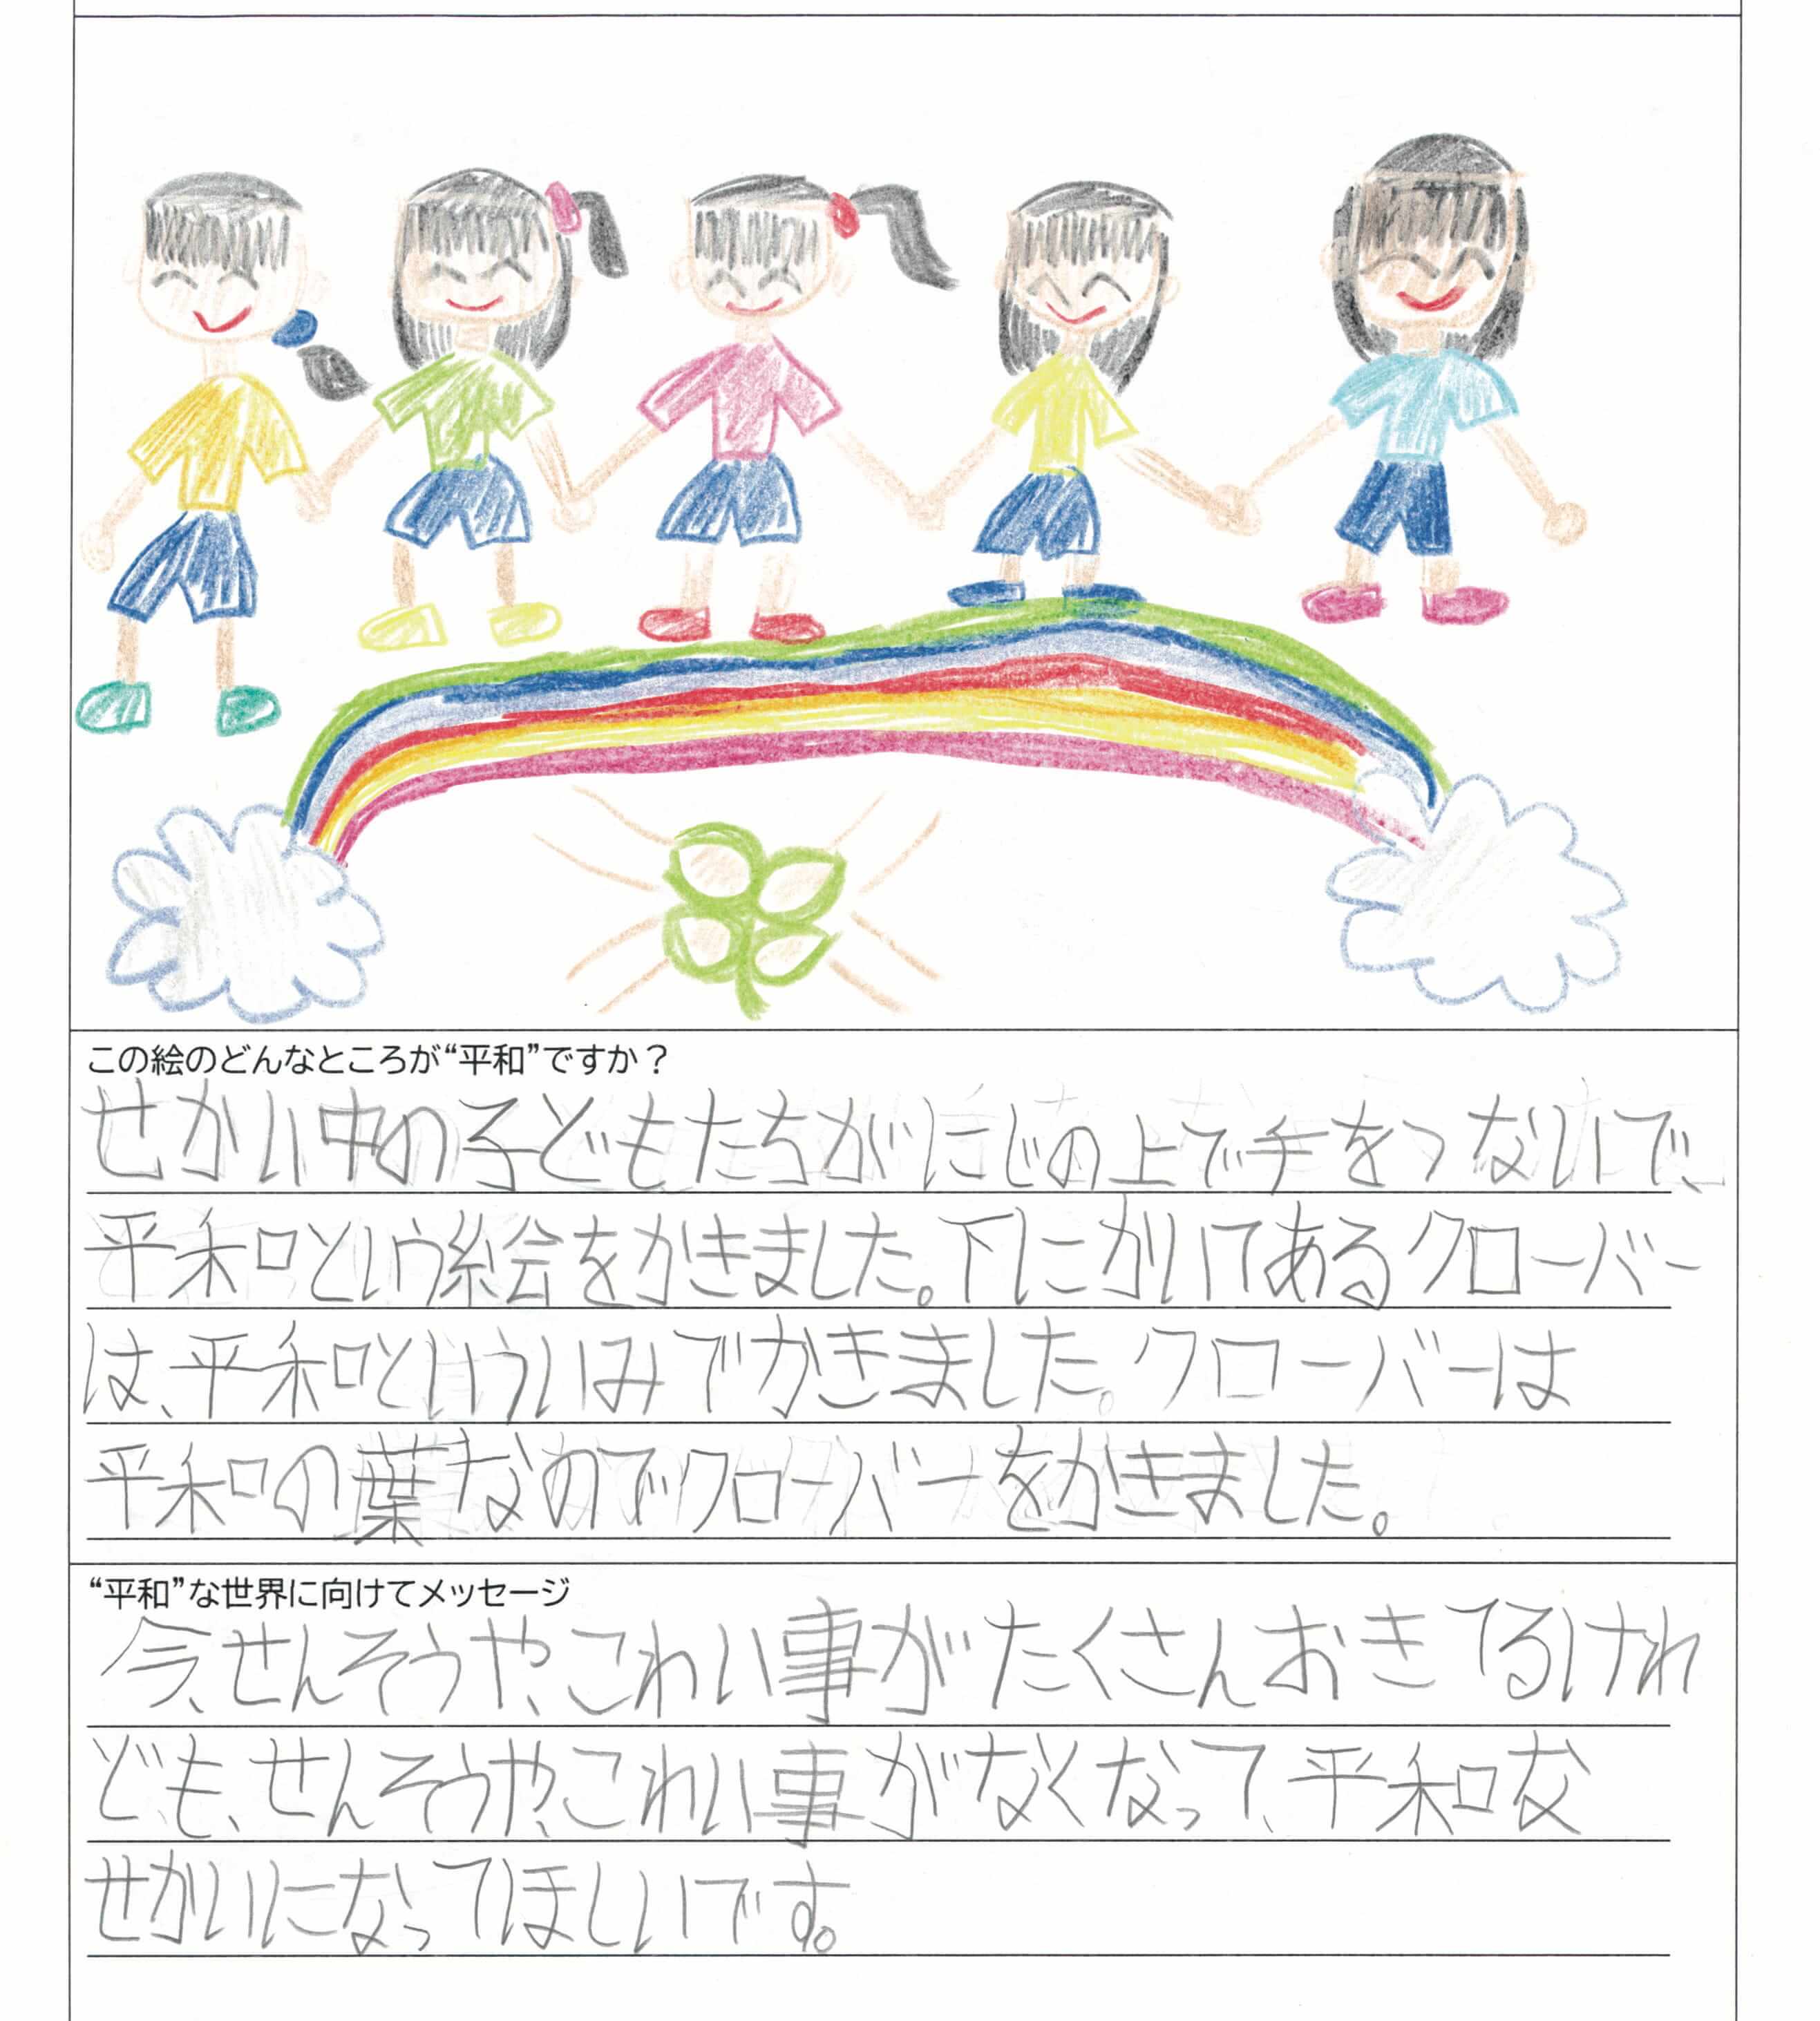 この絵のどんなところが“平和”ですか？
せかい中の子どもたちがにじの上で手をつないで、
平和という絵をかきました。下にかいてあるクローバー
は、平和といういみでかきました。クローバーは
平和の葉なのでクローバーをかきました。
“平和”な世界に向けてメッセージ
今、せんそうや、こわい事がたくさんおきてるけれ
ども、せんそうや、こわい事がなくなって、平和な
せかいになってほしいです。